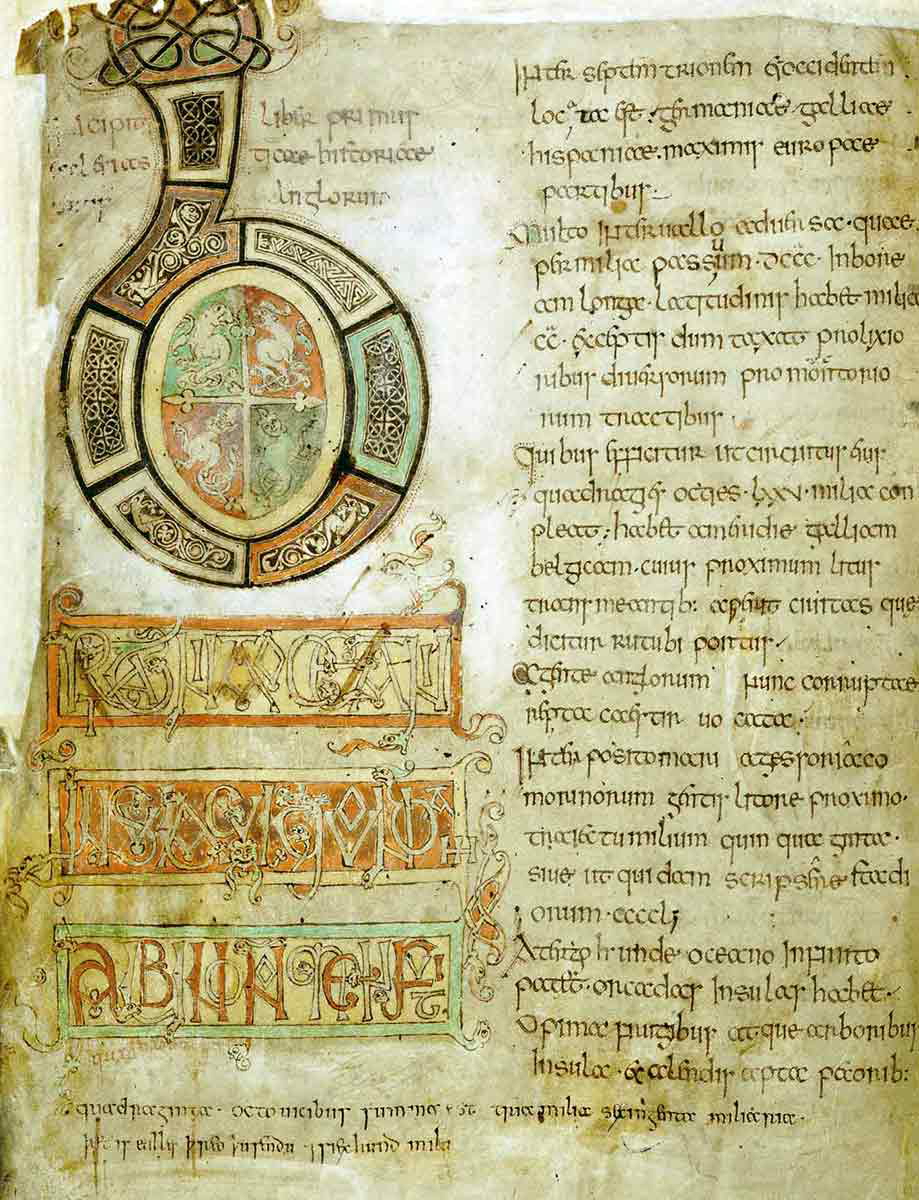 Liber primus
eclesias ticae historiae
Anglorum
OCEANI
INSULA CUI QUONDA
ALBION NOMEN FUIT
Inter septemtrionem et occidentem
locata est. germaniae galliae
hispaniae. maximis europae
partibus.
Multo interuallo aduersae. quae
per milia passuum. dccc. in bore
am longa. latitudinis habet milia
cc. exceptis dum taxat prolixio
ribus diuersorum promontorio
rum tractibus.
Quibus efficitur ut circuitus eius
quadragies octies. lxxu. milia con
pleat; habet a meridie galliam
belgicam. cuius proximum litus
transmeantib: aperit ciuitas que
dicitur rutubi portus
A gente anglorum nunc corruptae
reptacaestir uocata.
Interposito mari a gesoriaco
morinorum gentis litore proximo.
traiectu milium quinquaginta.
siue ut quidam scripsere stadi
orum. ccccl;
A tergo unde oceano infinito
patet. orcadas insulas habet.
Opima frugibus atque arboribus
insula. et alendis apta pecorib:
quadraginta. octo uicibus summa est milia sexingenta miliaria.